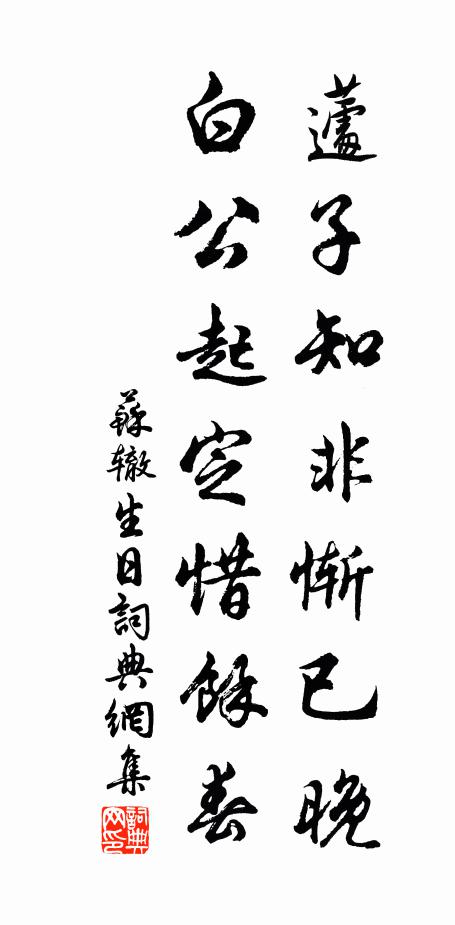 蘧子知非惭已晚
白公起定惜餘春
蘇辙生日詞典網集
詞典网印